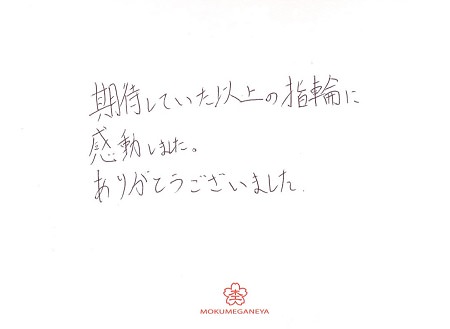 期待していた以上の指輪に
感動しました。
ありがとうございました.
杢
MOKUMEGANEYA